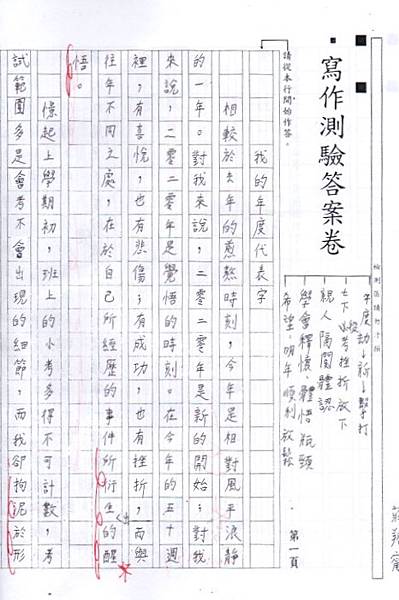 寫作測驗答案卷
請從本行開始作答。
第一頁
年度劫→新→擊打
七下從考挫折放下
親人隔閡體認
學會釋懷、體悟瓶頸
希望:明年順利放鬆
我的年度代表字
相較於去年的煎熬時刻,今年是相對風平浪靜
的一年。對我來說,二零二零年是新的開始;對我
來說,二零二零年是覺悟的時刻。在今年的五十週
裡,有喜悅,也有悲傷;有成功,也有挫折,而與
往年不同之處,在於自己所經歷的事件所衍生的醒
悟。
憬起上學期初,班上的小考多得不可計數,考
試範圍多是會考不會出現的細節,而我卻拘泥於形